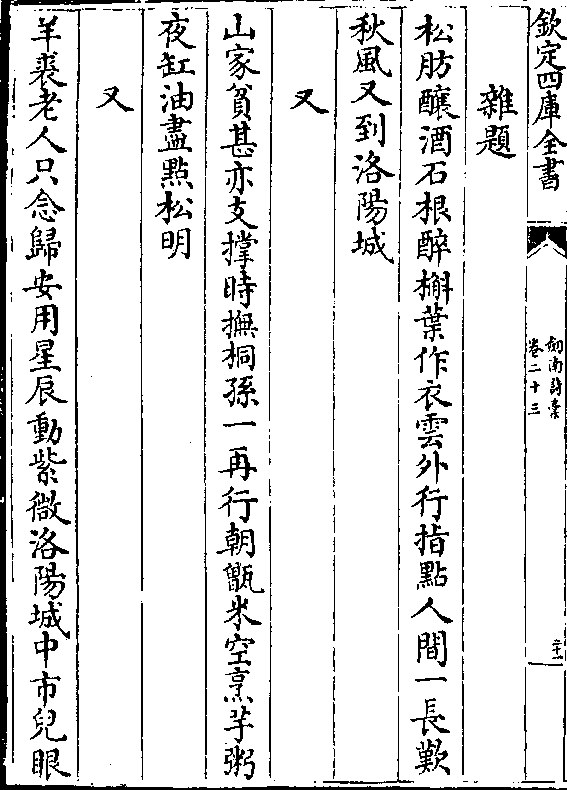 欽定四庫全書
劎南詩藁
卷二十三
三十一
雜題
松肪釀酒石根醉槲葉作衣雲外行指點人間一長歎
秋風又到洛陽城
又
山家貧甚亦支撑時撫桐孫一再行朝甑米空烹芋粥
夜缸油盡㸃松明
又
羊裘老人只念歸安用星辰動紫微洛陽城中市兒眼